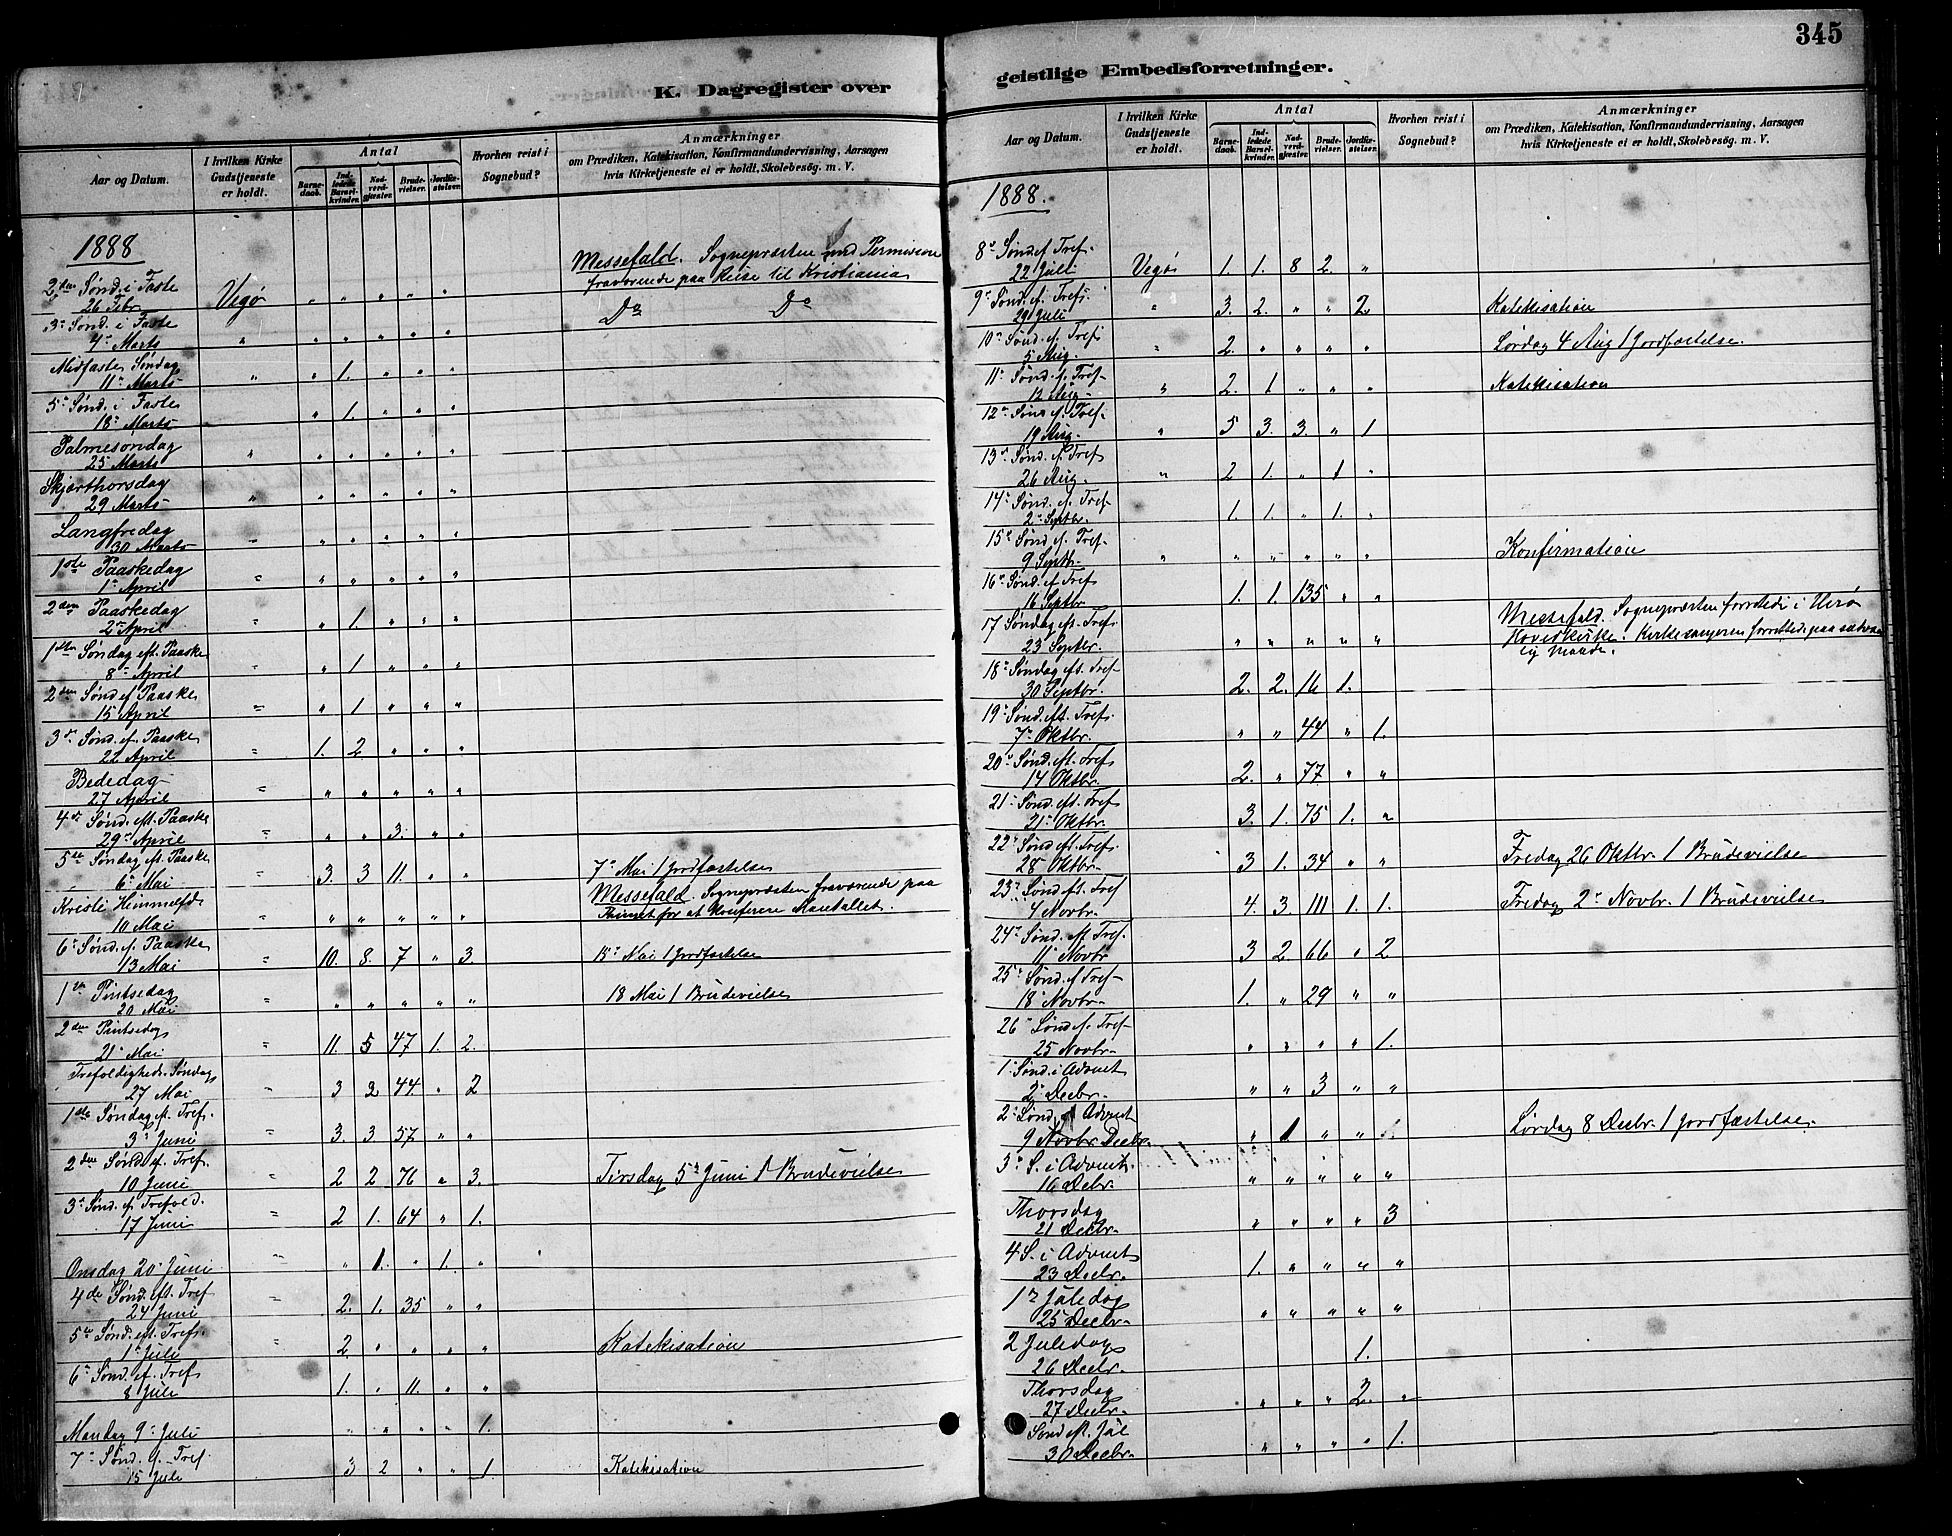 K. Dagregister over
Anmærkninger
Antal
I hvilken Kirke Gudstjeneste er holdt.
Hvorhen reist i Sognebud?
om Prædiken, Katekisation, Konfirmandundervisning, Aarsagen
hvis Kirketjeneste ei er holdt, Skolebesög. m. V.
Aar og Datum.
Barnedaab.
Indledede Barselkvinder.
Nadverdgjester.
Brudevielser.
Jordfæstelser.
1888
Messefald. Sognepræsten med Permission
fraværende paa Reise til Kristiania
2den Sønd. i Faste
26 Febr. Vegø " " " " "
Do Do
3die Sønd. i Faste
4de Marts " " " " " "
Midfaste Søndag
11te Marts " " 1. " " "
5te Sønd. i Faste
18de Marts " 1. " " "
Palmesøndag
25 Marts " " " " " "
Skjærthorsdag
29 Marts " " " " " "
Langfredag
30 Marts " " " " " "
1ste Paaskedag
1ste April " " " " " "
2den Paaskedag
2den April " " 1. " " "
1ste Søndag eft. Paaske
8de April " " 1. " " "
2den Sønd. ef Paaske
15 April " " 1. " " "
3die Sønd. ef. Paaske
22 April " 1. 2. " " "
Bededag
27 April " " " " " "
4de Sønd. eft. Paaske
29de April " " " 3. " "
5te Søndag eft. Paaske
6te Mai " 3. 3 11. " " 7de Mai 1 Jordfæstelse
Messefald. Sognepræsten fraværende paa
Kristi Himmelfd.
10 Mai " " " " " " for at Konferere Mantallet.
6te Sønd. ef. Paaske
13 Mai " 10. 8. 7 " 3. 15de Mai 1 Jordfæstelse
1ste Pintsedag
20 Mai " " " " " " 18 Mai 1 Brudevielse
2den Pintsedag
21de Mai " 11. 5 47 1. 2.
Trefoldigheds Søndag
27 Mai " 3 2 44. " 2
1ste Søndag eft. Tref.
3die Juni " 3. 3 57 " "
2den Sønd ef. Tref.
10 Juni " 2 2 76 " 3. Tirsdag 5te Juni 1 Brudevielse
3die Sønd. ef Trefold.
17 Juni " 2 1. 64 " 1.
Onsdag 20de Juni " " 1. " 1. "
4de Sønd. eft. Tref
24 Juni " 2. 1. 35 " "
5te Sønd. eft. Tref.
1ste Juli " 2. " " " " Katekisation
6te Sønd. ef. Tref
8 Juli 1. " 11. " "
Mandag 9de Juli " " " " 1.
7de Sønd. ef. Tref.
15 Juli 3 2 " " 1. Katekisation
345
geistlige Embedsforretninger.
Anmærkninger
Antal
I hvilken Kirke Gudstjeneste er holdt.
Hvorhen reist i Sognebud?
om Prædiken, Katekisation, Konfirmandundervisning, Aarsagen
hvis Kirketjeneste ei er holdt, Skolebesög. m. V.
Aar og Datum.
Barnedaab.
Indledede Barselkvinder.
Nadverdgjester.
Brudevielser.
Jordfæstelser.
1888.
8de Sønd ef Tref.
22 Juli Vegø 1. 1. 8 2. "
9de Sønd. ef. Tref.
29 Juli " 3. 2. " " 2. Katekisation
10de Sønd. ef. Tref.
5 Aug. " 2. " " " " Lørdag 4 Aug 1 Jordfæstelse.
11te Sønd. ef. Tref.
12 Aug. " 2. 1 " " " Katekisation
12te Sønd ef. Tref.
19 Aug. " 5 3. 3. " 1
13de Sønd. ef. Tref
26 Aug. " 2 1. " 1 "
14de Sønd. ef. Tref
2den Septbr. 1. 1. " 1. "
15de Sønd. ef. Tref.
9 Septbr. " " " " " " Konfirmation
16de Sønd. ef Tref
16 Septbr 1. 1. 135 " "
Messefald. Sognepræsten forrettede i Herø
17 Søndag eft. Tref.
23 Septbr. " " " " " Hovedkirke. Kirkesangeren forrettede paa sedvan
lig Maade.
18de Søndag eft. Tref.
30 Septbr. 2. 2. 16 1.
19de Sønd. eft. Tref.
7de Oktbr. " " 44 " 1.
20de Sønd. eft. Tref
14 Oktbr. 2. " 77 " "
21de Sønd. eft. Tref
21de Oktbr. 3. 1. 75 1. "
22de Sønd. eft. Tref.
28 Oktbr. 3 1. 34 " " Fredag 26 Oktbr 1 Brudevielse
23de Sønd ef. Tref
4 Novbr. 4. 3. 111 1. 1. Fredag 2den Novbr. 1 Brudevielse
24de Sønd. eft. Tref.
11te Novbr 3 2 66 " 2
25de Sønd. ef Tref
18de Novbr. 1. " 29 " "
26de Sønd ef. Tref
25 Novbr. " " " " 1.
1ste Sønd. i Advent
2den Decbr. " " 3 " "
2den Sønd. i Advent
9 Novbr. Decbr. " 1 " " Lørdag 8 Decbr. 1 Jordfæstelse.
3die S. i Advent.
16 Decbr. " " " " "
Thorsdag
21 Decbr. " " " " 3
4 S. i Advent
23 Decbr. 1. " " " "
1ste Juledag
25 Decbr. " " " " "
2 Juledag
26 Decbr. 1.
Thorsdag
27 Decbr. " " " 2. "
Sønd eft. Jul
30 Decbr. " " " " 1.